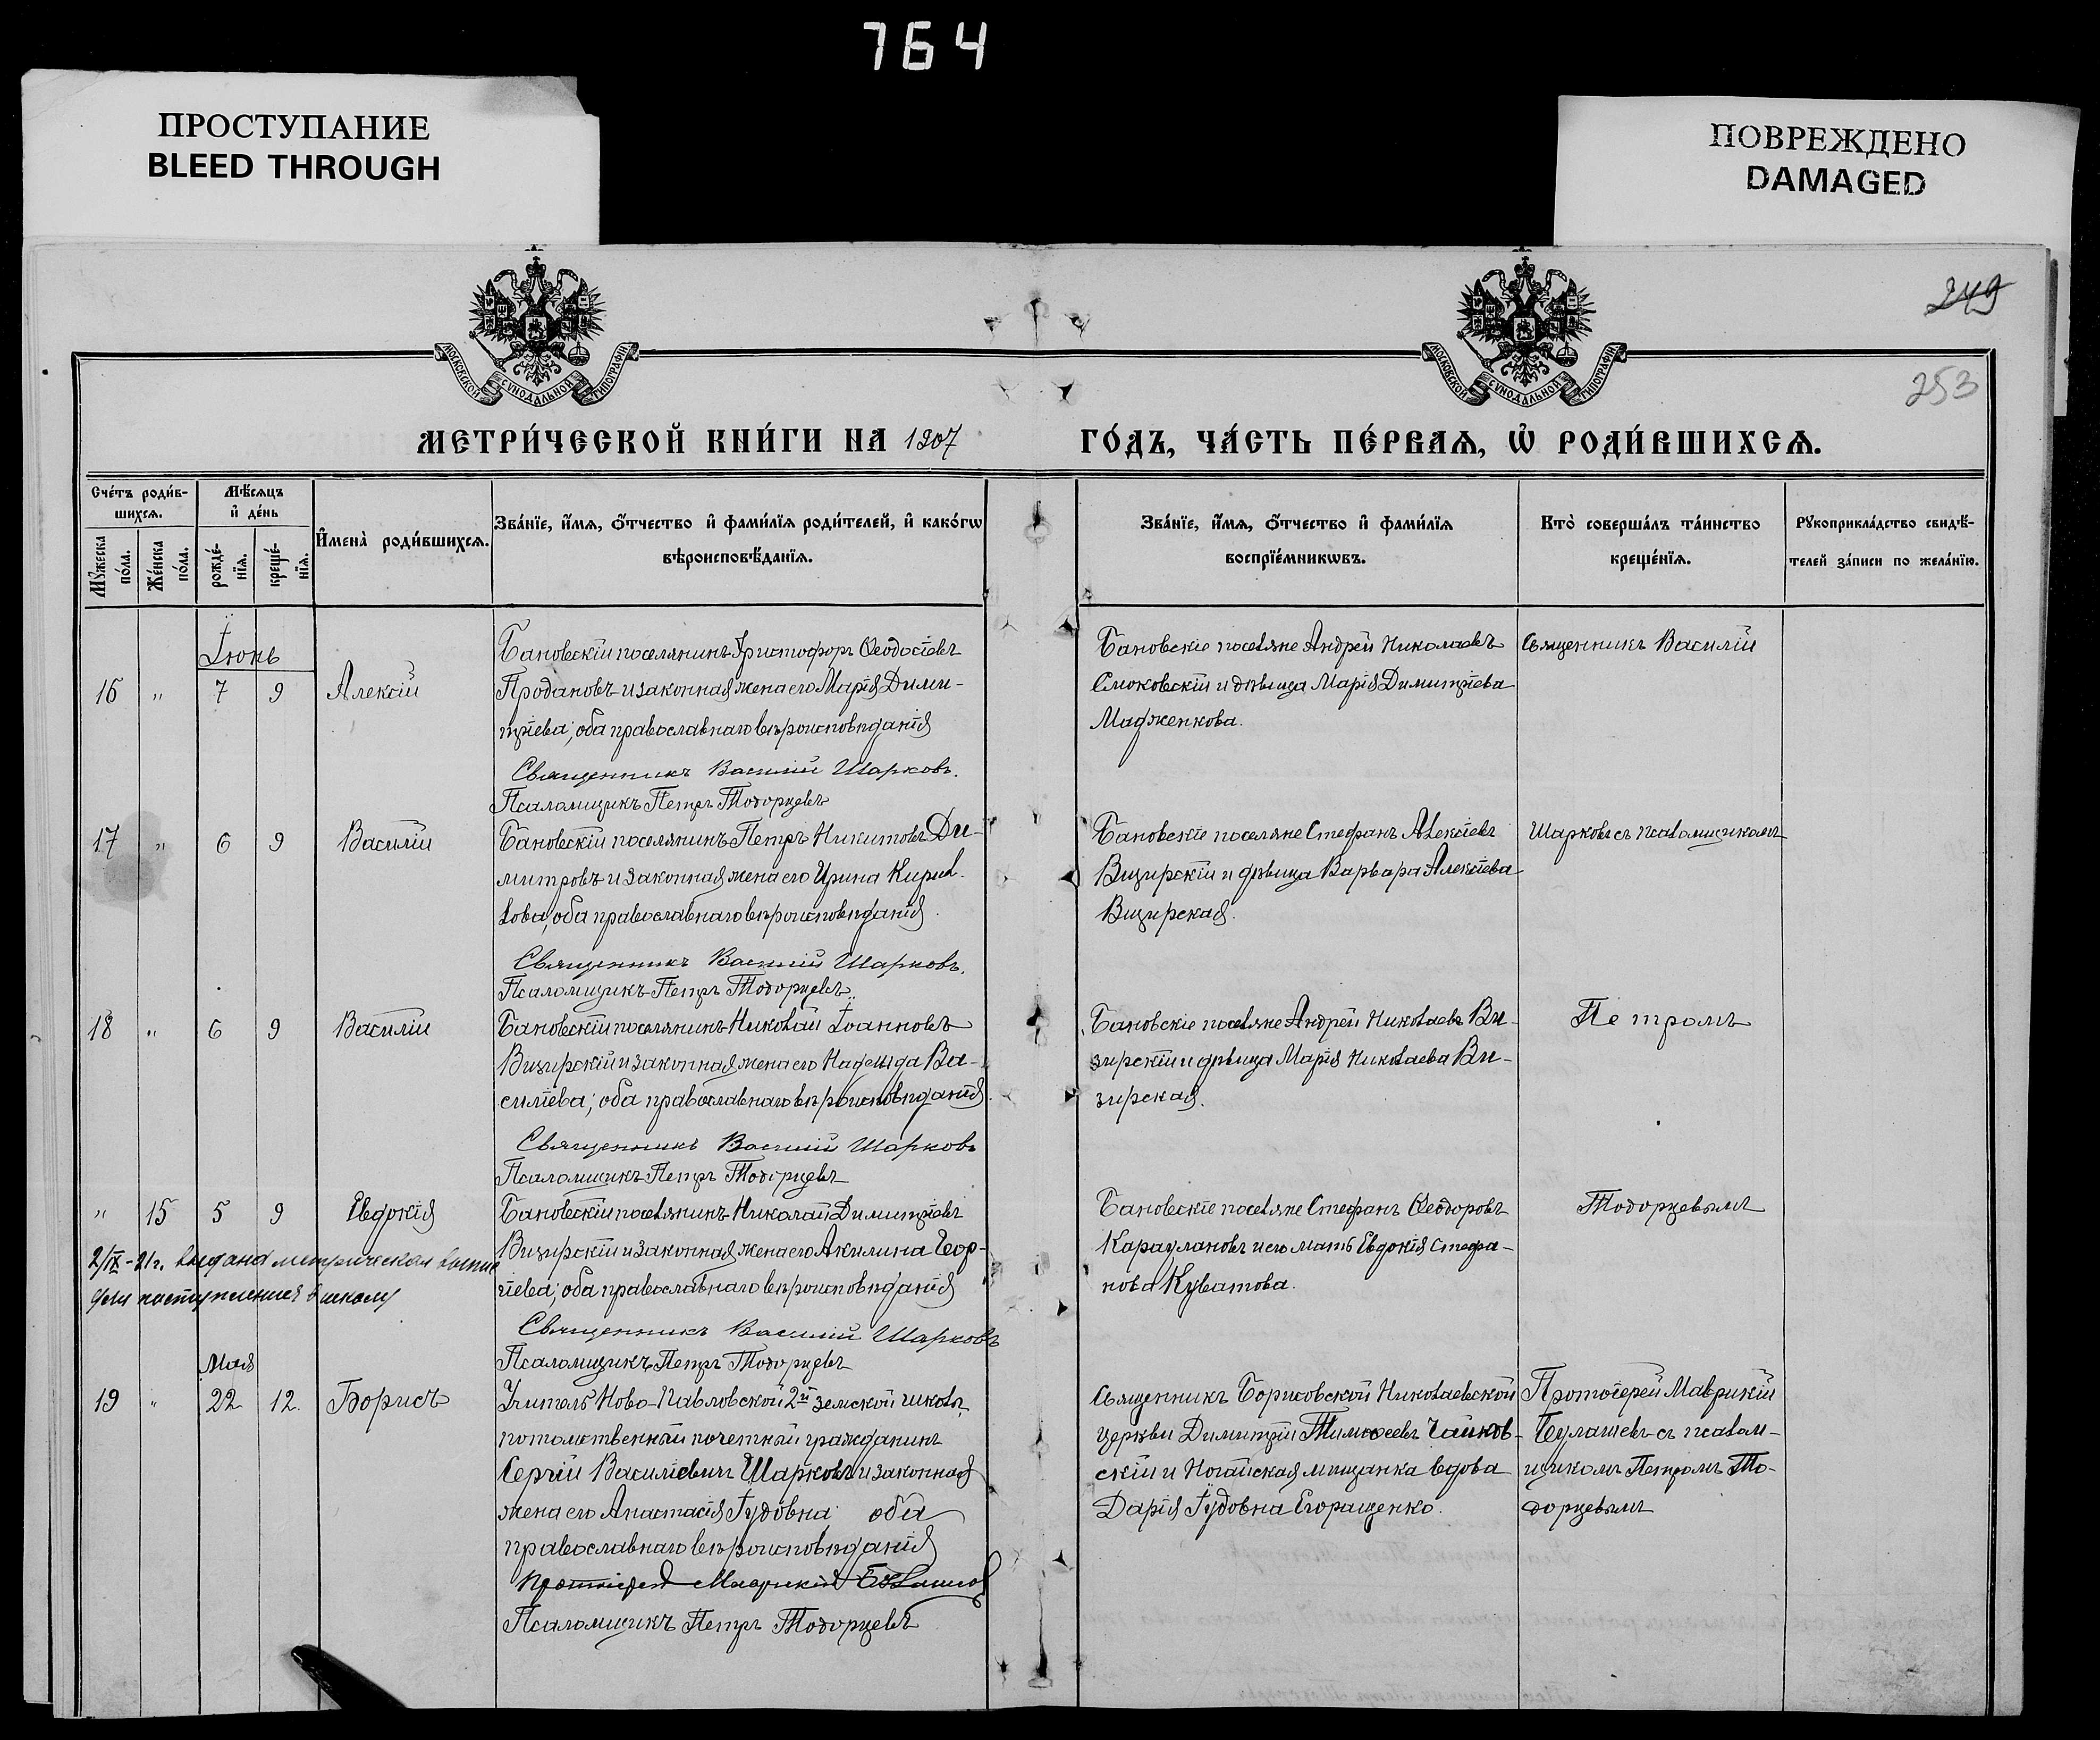 764
ПРОСТУПАНИЕ
BLEED THROUGH
ПОВРЕЖДЕНО
DAMAGED
249
253
МОСКОВСКОЙ СѴНОДАЛЬНОЙ ТИПОГРАФІИ
МОСКОВСКОЙ СѴНОДАЛЬНОЙ ТИПОГРАФІИ
МЕТРИ́ЧЕСКОЙ КНИ́ГИ НА 1907 ГО́ДЪ, ЧА́СТЬ ПЕ́РВАѦ, Ѽ РОДИ́ВШИХСѦ.
Сче́тъ роди́в-
шихсѧ.
Мѣ́сѧцъ
и҆ де́нь
Мꙋ́жеска по́ла.
Же́нска по́ла.
рожде́-
нїѧ.
креще́-
нїѧ.
И҆мена̀ роди́вшихсѧ.
Зва́нїе, и҆́мѧ, ѻ҆́тчество и҆ фами́лїѧ роди́телей, и҆ како́гѡ
вѣроисповѣ́данїѧ.
Зва́нїе, и҆́мѧ, ѻ҆́тчество и҆ фами́лїѧ
воспрїе́мникѡвъ.
Кто̀ соверша́лъ та́инство
креще́нїѧ.
Рꙋкоприкла́дство свидѣ́-
телей за́писи по жела́нїю.
Іюнь
16 " 7 9 Алексій
Бановскій поселянинъ Христофоръ Ѳеодосіевъ
Продановъ и законная жена его Марія Дими-
тріева; оба православнаго вѣроисповѣданія
Священникъ Василій Шарковъ.
Псаломщикъ Петръ Тодорцевъ
Бановскіе поселяне Андрей Николаевъ
Смоковскій и дѣвица Марія Димитріева
Мадженкова.
Священникъ Василій
17 " 6 9 Василій
Бановскій поселянинъ Петръ Никитовъ Ди-
митровъ и законная жена его Ирина Кирил-
лова; оба православнаго вѣроисповѣданія.
Священникъ Василій Шарковъ.
Псаломщикъ Петръ Тодорцевъ.
Бановскіе поселяне Стефанъ Алексіевъ
Визирскій и дѣвица Варвара Алексіева
Визирская.
Шарковъ съ псаломщикомъ
18 " 6 9 Василій
Бановскій поселянинъ Николай Іоанновъ
Визирскій и законная жена его Надежда Ва-
силіева; оба православнаго вѣроисповѣданія.
Священникъ Василій Шарковъ
Псаломщикъ Петръ Тодорцевъ
Бановскіе поселяне Андрей Николаевъ Ви-
зирскій и дѣвица Марія Николаева Ви-
зирская.
Петромъ
" 15 5 9 Евдокія
2/IX-21г. выдана метрическая выпис
для поступления в школу
Бановскій поселянинъ Николай Димитріевъ
Визирскій и законная жена его Акилина Геор-
гіева; оба православнаго вѣроисповѣданія
Священникъ Василій Шарковъ
Псаломщикъ Петръ Тодорцевъ
Бановскіе поселяне Стефанъ Ѳеодоровъ
Караулановъ и его мать Евдокія Стефа-
нова
Тодорцевымъ
Мая
19 " 22 12. Борисъ
Учитель Ново-Павловской 2й земской школы,
потомственный почетный гражданинъ
Сергій Василіевичъ Шарковъ и законная
жена его Анастасія Іудовна оба
православнаго вѣроисповѣданія
Протоіерей Маврикій
Псаломщикъ Петръ Тодорцевъ
Священникъ Борисовской Николаевской
церкви Димитрій Тимоѳеевъ Чайков-
скій и Ногайская мѣщанка вдова
Дарія Іудовна Егоращенко.
Протоіерей Маврикій
Булашевъ съ псалом-
щикомъ Петромъ То-
дорцевымъ